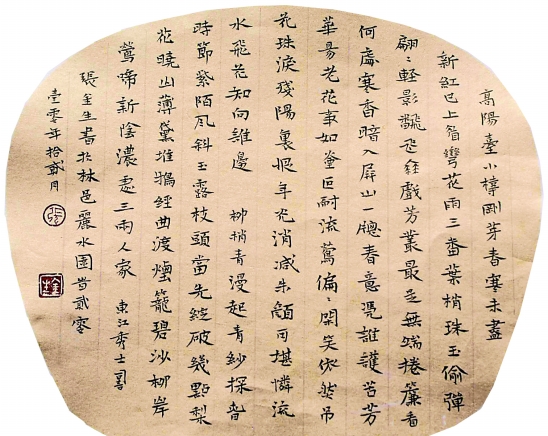 高陽臺小樟剛芽春寒未盡
新紅已上眉彎花雨三番葉梢珠玉偷彈
翩輕影飛戲芳叢最是無端捲簾看
何處寒香暗入屏山一窗春意憑誰護苦芳
華易老花事如釜叵耐流鶯偏開笑依然吊
花珠淚殘陽裏恨年光消減朱顏可堪憐流
水飛花知向誰邊 柳梢青漫起青紗探春
時節紫陌風斜玉露枝頭當先綻破幾點梨
花曉山薄黛堆鴉經曲渡煙籠碧沙柳岸
鶯啼新陰濃處三兩人家 東江秀士詞
張生書於林邑麗水園貳零
壹零年拾貳月
張